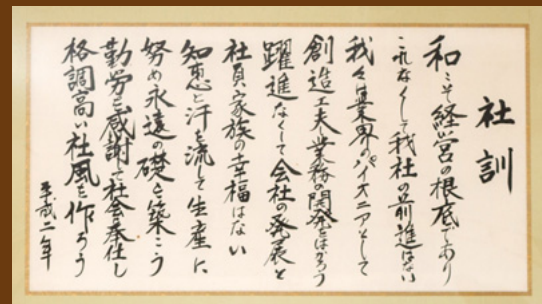 社訓
和こそ経営の根底であり
これなくして我社の前進はない
我々は業界のパイオニアとして
創造工夫業務の開発をはかろう
躍進なくして会社の発展と
社員家族の幸福はない
知恵と汗を流して生産に
努め永遠の礎を築こう
勤労と感謝で社会に奉仕し
格調高い社風を作ろう
平成二年